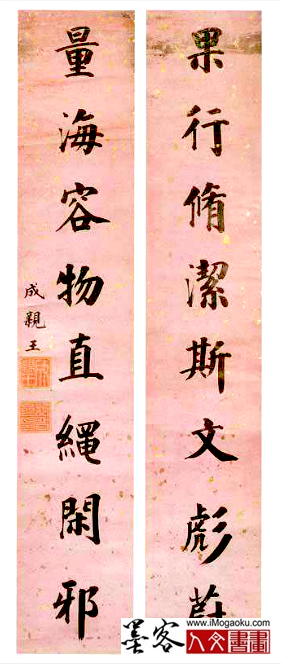 果行脩潔斯文彪蔚
量海容物直繩閑邪
成親王
www.iMogaoku.com
墨客
人文書畫